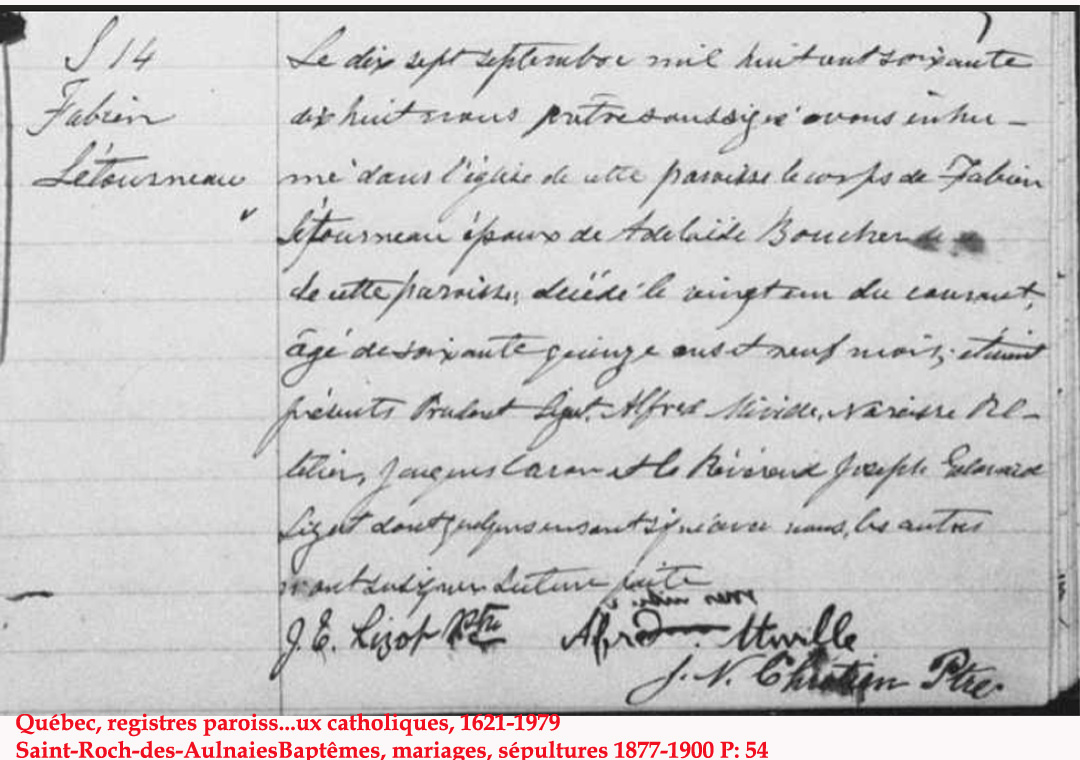 S 14
Fabien
Létourneau
Le dix sept septembre mil huit cent soixante
dix huit nous prêtre soussigné avons inhu-
mé dans l'église de cette paroisse le corps de Fabien
Létourneau époux de Adelaïde Boucher
de cette paroisse, décédé le vingt un du courant,
âgé de soixante quinze ans et neuf mois; étaient
présents Prudent Lizot, Alfred Miville, Narcisse Pel-
letier, Jacques Caron et le Révérend Joseph Edouard
Lizot dont quelques uns ont signé avec nous, les autres
n'ont su signer Lecture faite
J. E. Lizot Ptre
Alfred Miville
J. N. Chrétien Ptre
Québec, registres paroiss...ux catholiques, 1621-1979
Saint-Roch-des-AulnaiesBaptêmes, mariages, sépultures 1877-1900 P: 54